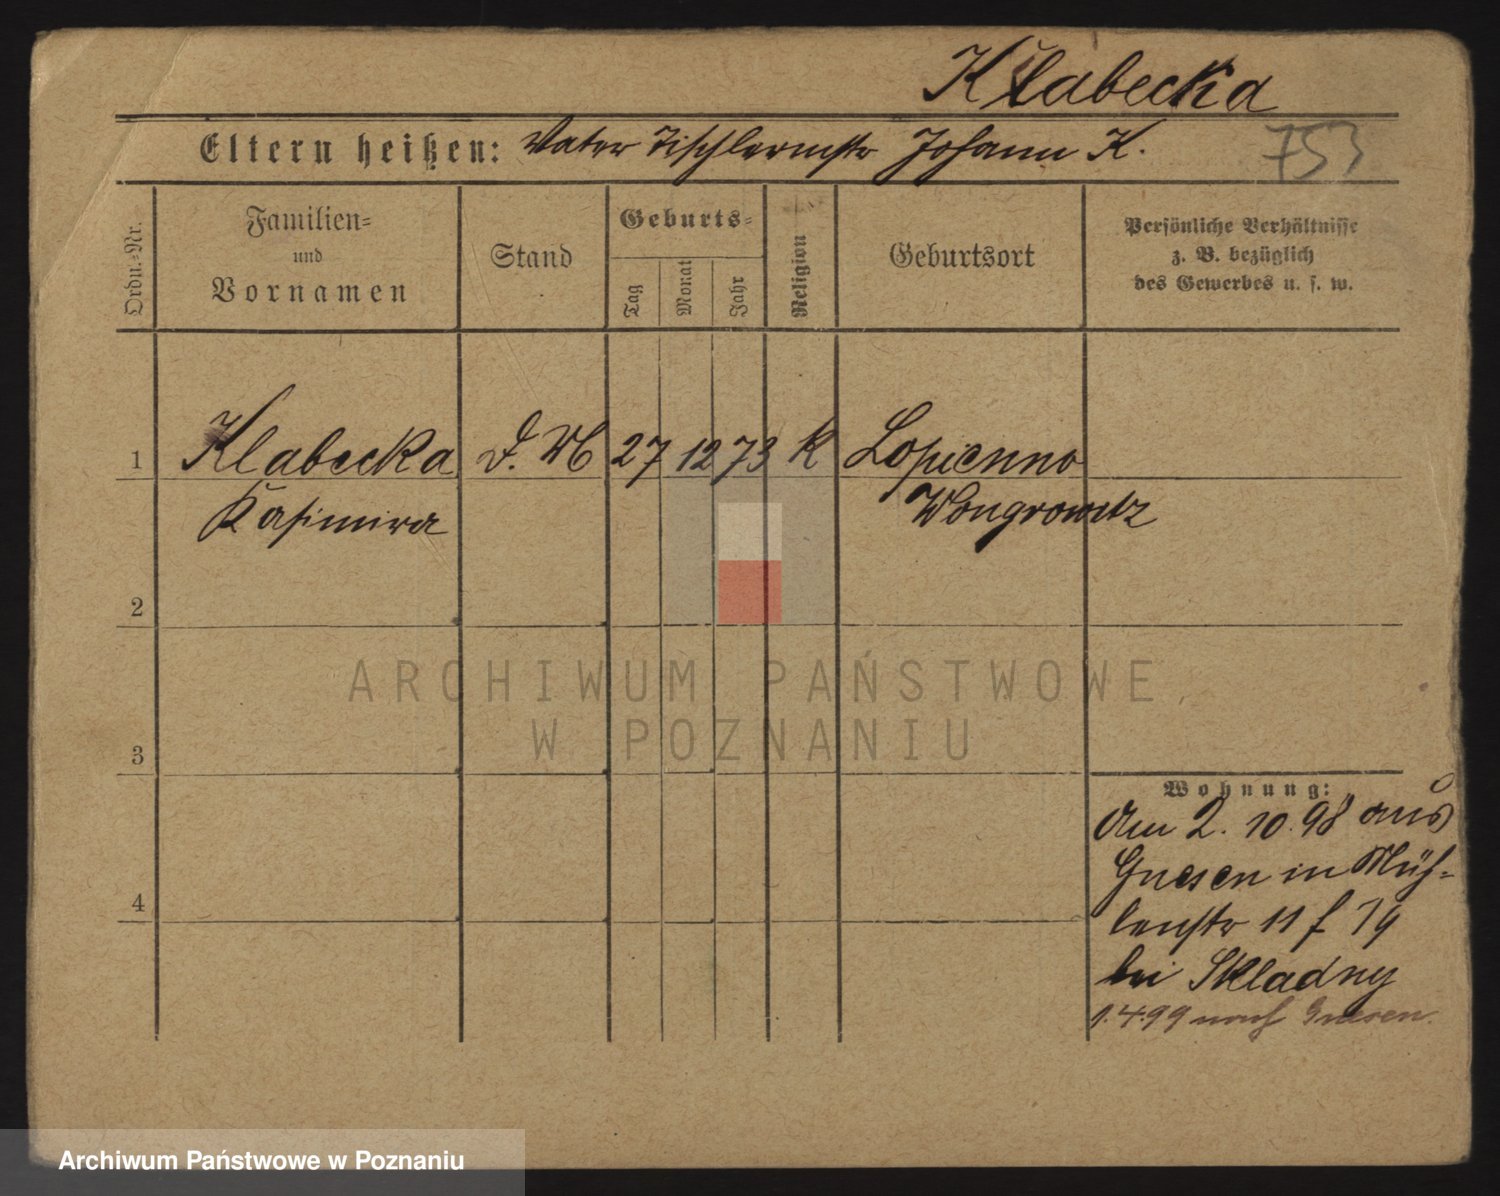 Klabecka
Eltern heißen: Vater Tischlermstr Johann K.
753
Ordn.-Nr.
Familien-
und
Vornamen
Stand
Geburts-
Tag
Monat
Jahr
Religion
Geburtsort
Persönliche Verhältnisse
z. B. bezüglich
des Gewerbes u. s. w.
1 Klabecka D. M 27 12 73 k Lopienno
Kasimira Wongrowitz
2
ARCHIWUM PAŃSTWOWE
W POZNANIU
3
Wohnung:
Am 2. 10. 98 aus
Gnesen in Müh-
4
lenstr 11 f 79
bei Skladny
1.4.99 nach Gnesen.
Archiwum Państwowe w Poznaniu